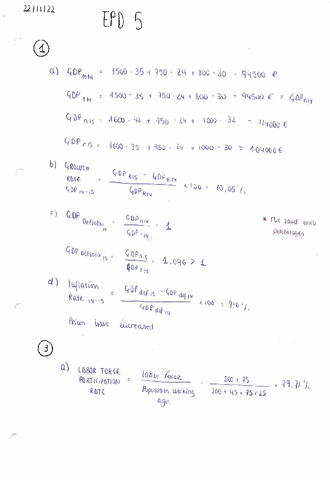 22/11/22
EPD 5
1
a) GDP N14 = 1500 · 35 + 750 · 24 + 800 · 30 = 94500 €
GDP r14 = 1500 · 35 + 750 · 24 + 800 · 30 = 94500 € = GDP N14
GDP N15 = 1600 · 40 + 750 · 24 + 1000 · 32 = €
GDP r15 = 1600 · 35 + 750 · 24 + 1000 · 30 = 104000 €
b) GROWTH RATE GDP 14-15 = GDP R15 - GDP R14 / GDP R14 × 100 = 10,05%
c) GDP Deflator 14 = GDP N14 / GDP r14 = 1
* The same with percentages
GDP Deflator 15 = GDP N15 / GDP r15 = 1,096 > 1
d) Inflation Rate 14-15 = GDP def 15 - GDP def 14 / GDP def 14 × 100 = 9'6%
Prices have increased
3
a) LABOR FORCE PARTICIPATION RATE = labor force / Population working age = 200 + 75 / 200 + 45 + 75 + 25 = 79.71%